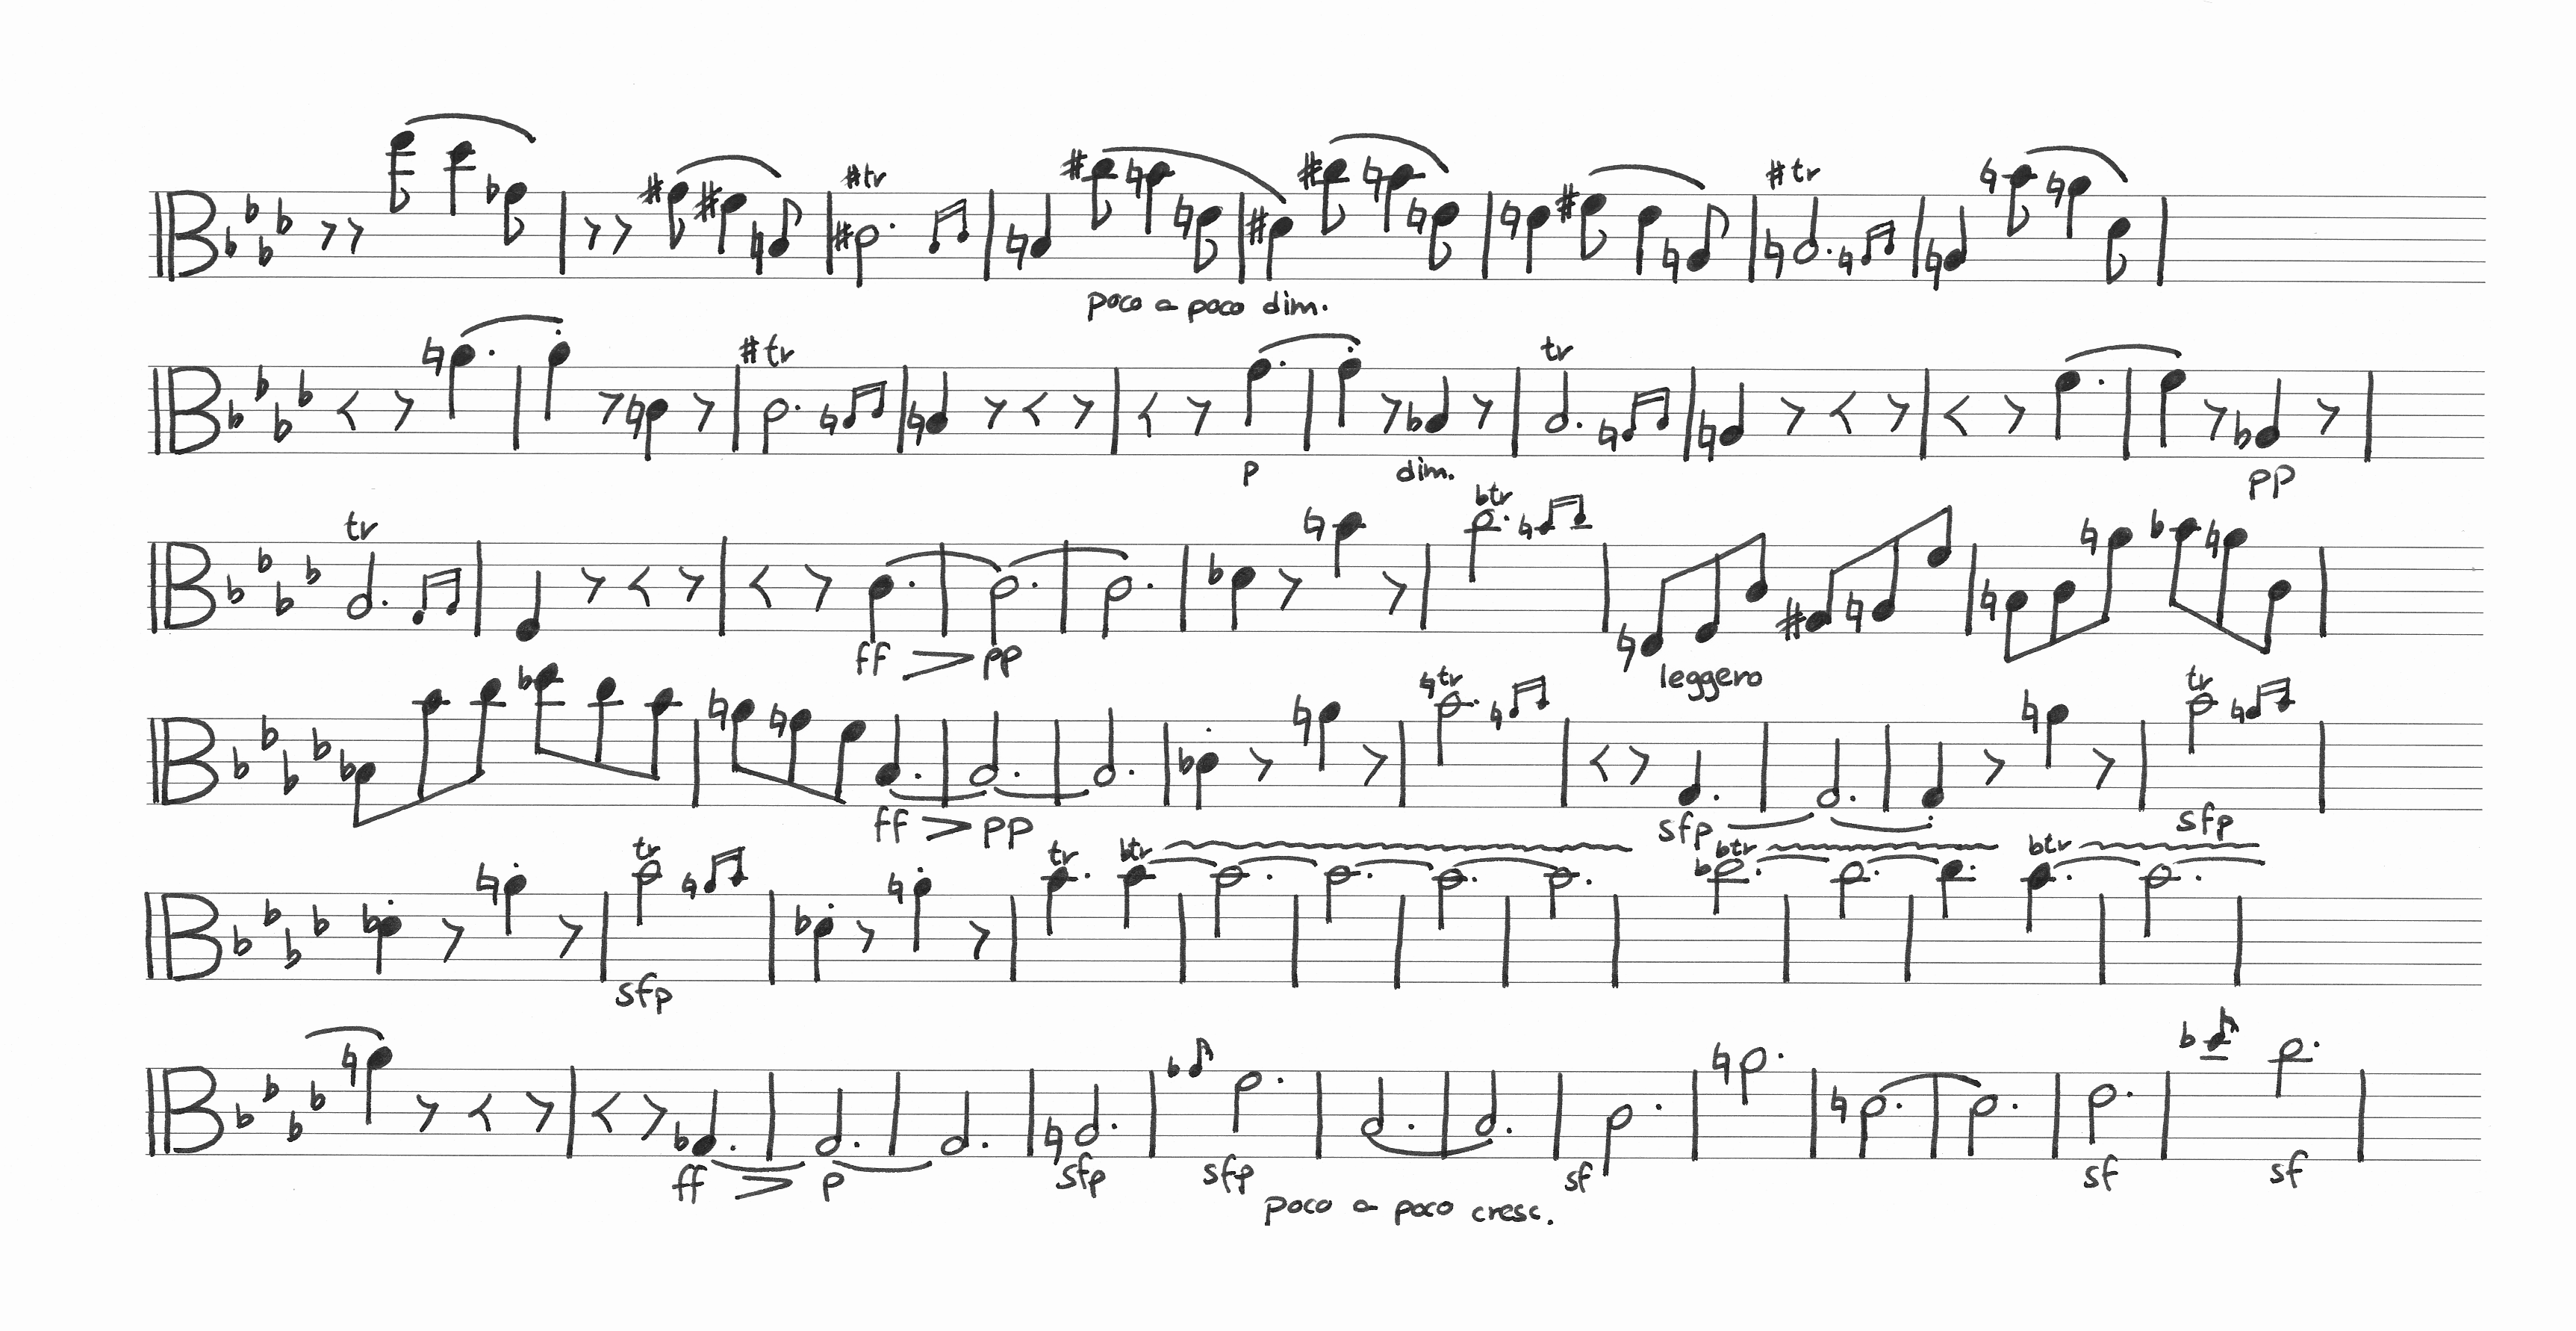 tr
poco a poco dim.
tr
tr
tr
tr
p dim. pp
tr
tr
ff pp leggero
tr
tr
ff pp sfp sfp
tr tr tr tr tr
sfp
ff p sfp sfp sf sf sf
poco a poco cresc.